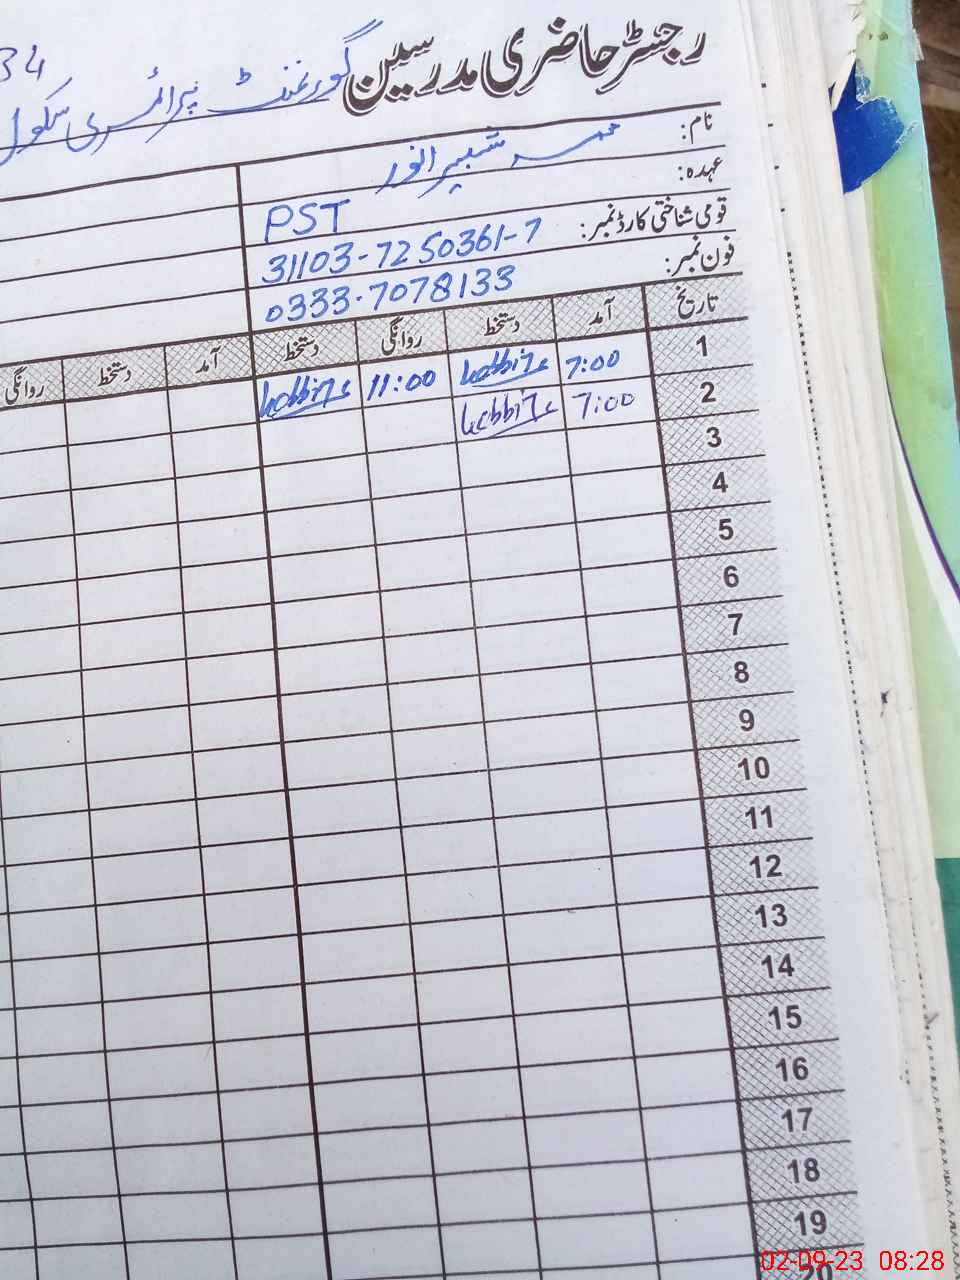 رجسٹر حاضری مدرسین گورنمنٹ پرائمری سکول 34
نام: محمد شبیر انور
عہدہ: PST
قومی شناختی کارڈ نمبر: 31103-7250361-7
فون نمبر: 0333-7078133
تاریخ آمد دستخط روانگی دستخط آمد دستخط روانگی
1 7:00 11:00
2 7:00
3
4
5
6
7
8
9
10
11
12
13
14
15
16
17
18
19
20
02-09-23 08:28